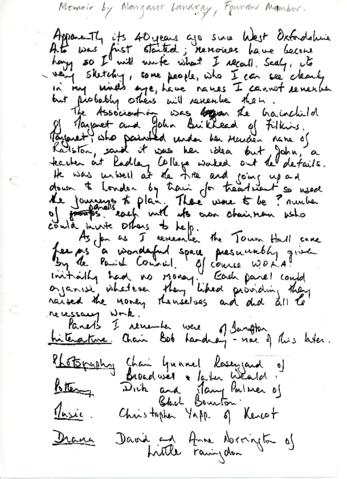 Memoir by Margaret Landray, Founder Member.
Apparently its 40 years ago since West Oxfordshire
Arts was first started; memories have become
hazy so I will write what I recall. Sadly, its
very sketchy, some people, who I can see clearly
in my minds eye, have names I cannot remember
but probably others will remember them.
The Association was the brainchild
of Margaret and John Birkhead of Filkins.
Margaret, who painted under her maiden name of
Ralston, said it was her idea but John, a
teacher at Radley College worked out the details.
He was unwell at the time and going up and
down to London by train for treatment so used
the journeys to plan. There were to be ? number
of panels each with its own chairman who
could invite others to help.
As far as I remember the Town Hall came
free as a wonderful space presumably given
by the Parish Council. Of course W.O.A.A.
initially had no money. Each panel could
organise whatever they liked providing they
raised the money themselves and did all the
necessary work.
Panels I remember were of Bampton
Literature. Chair Bob Landray - more of this later.
Photography Chair Gunnel of
Broadwell & later Weald.
Pottery Dick and Mary Palmer of
Black Bourton.
Music. Christopher Yapp of Kencot
Drama David and Anne Norrington of
Little Faringdon